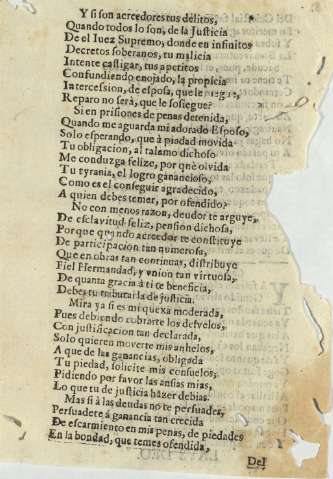 Y si son acreedores tus delitos,
Quando todos lo son, de la Justicia
De el Iuez Supremo, donde en infinitos
Decretos soberanos, tu malicia
Intente castigar, tus apetitos
Confundiendo enojado, la propicia
Intercession, de esposa, que le
Reparo no serà, que le sosiegue?
Si en prisiones de penas detenida,
Quando me aguarda mi adorado Esposo,
Solo esperando, que à piadad movida
Tu obligacion, al talamo dichoso
Me conduzga felize, por què olvida
Tu tyrania, el logro ganancioso,
Como es el conseguir agradecido,
A quien debes temer, por ofendido?
No con menos razon, deudor te arguye,
De esclavitud feliz, pension dichosa,
Porque quando acreedor te constituye
De participacion tan numerosa,
Que en obras tan continuas, distribuye
Fiel Hermandad, y vnion tan virtuosa,
De quanta gracia à ti te beneficia,
Debes tu tributarla de justicia.
Mira ya si es mi quexa moderada,
Pues debiendo cobrarte los desvelos,
Con justificacion tan declarada,
Solo quieren moverte mis anhelos,
A que de las ganancias, obligada
Tu piedad, solicite mis consuelos,
Pidiendo por favor las ansias mias,
Lo que tu de justicia hàzer debias.
Mas si à las deudas no te persuades,
Persuadete à ganancia tan crecida
De escarmiento en mis penas, de piedades
En la bondad, que temes ofendida,
Del